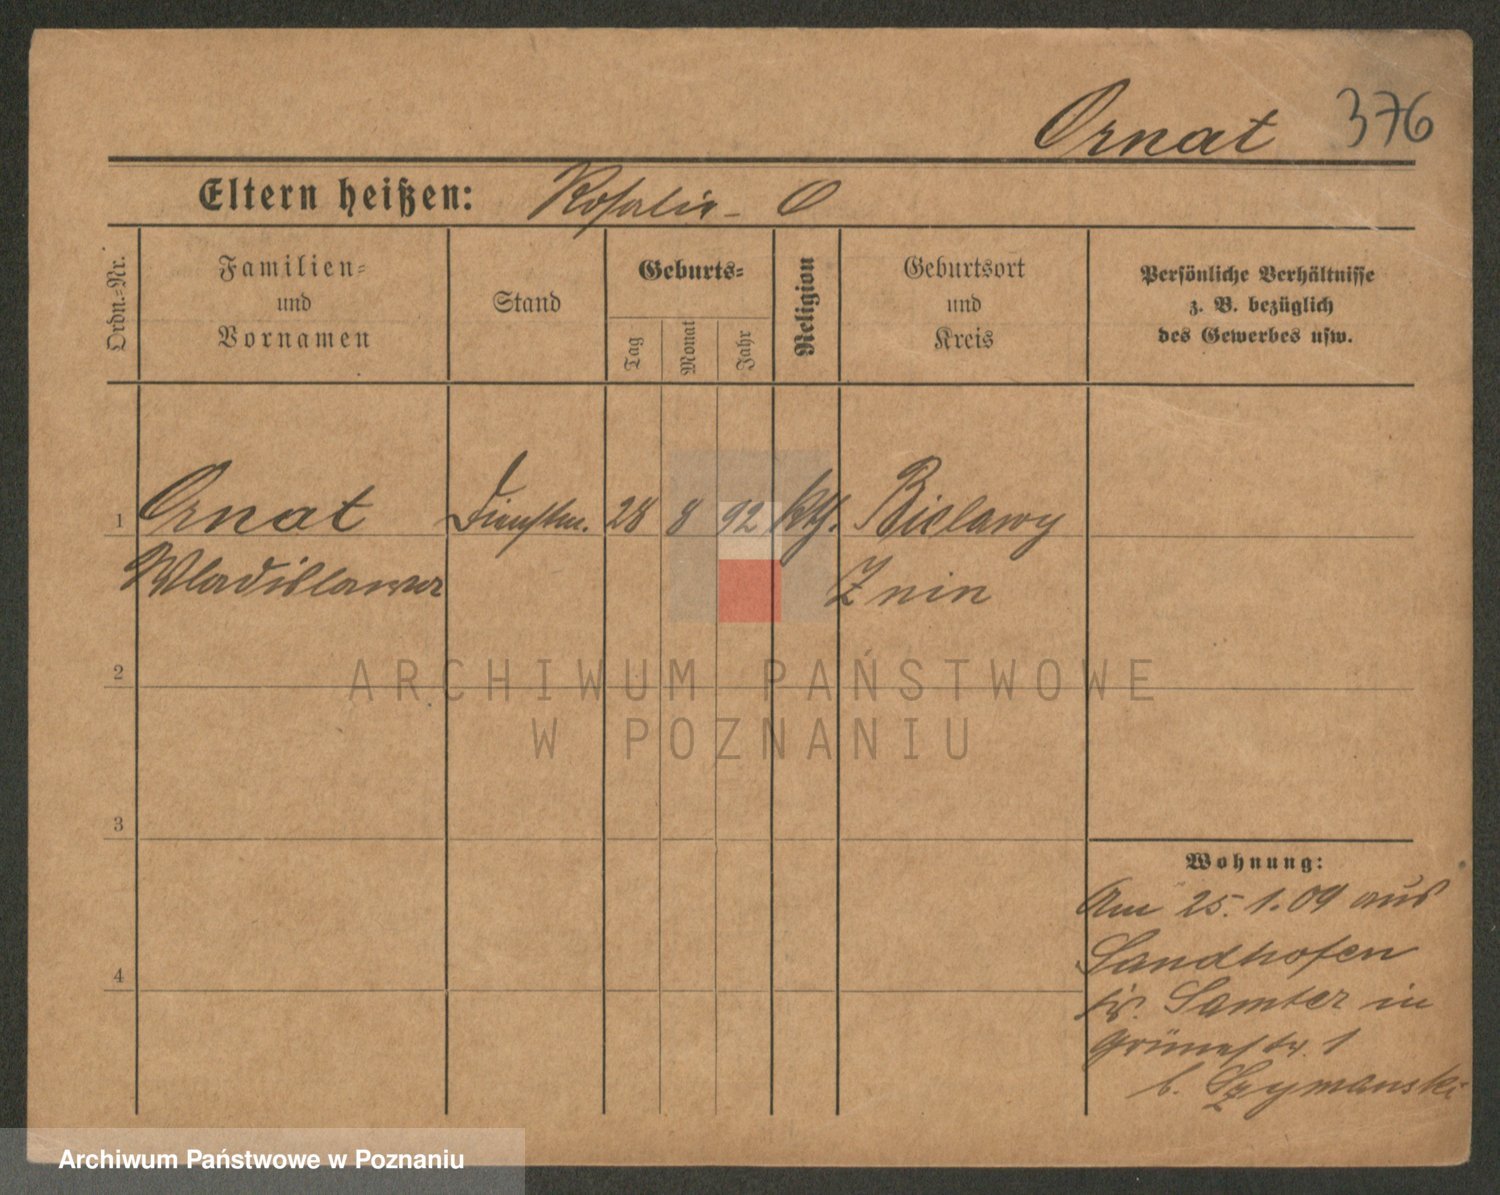 Ornat 376
Eltern heißen: Rosalie - O
Ordn.-Nr.
Familien-
und
Vornamen
Stand
Geburts-
Tag
Monat
Jahr
Religion
Geburtsort
und
Kreis
Persönliche Verhältnisse
z. B. bezüglich
des Gewerbes usw.
1 Ornat Dienstm. 28 8 92 kth. Bielawy
Wladislawa Znin
2
3
4
Wohnung:
Am 25.1.09 aus
Sandhofen
Kr. Samter in
Grünestr. 1
b. Szymanski
ARCHIWUM PAŃSTWOWE
W POZNANIU
Archiwum Państwowe w Poznaniu